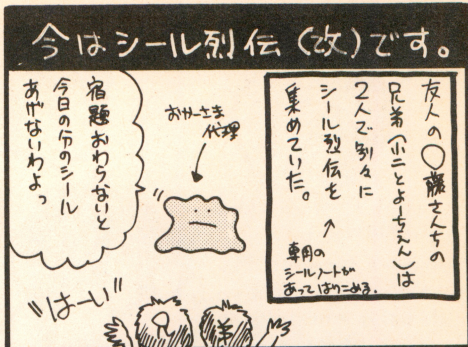 今はシール烈伝(改)です。
友人の○藤さんちの
兄弟(小二とよーちえん)は
2人で別々に
シール烈伝を
集めていた。
専用の
シールノートが
あってはりこめる。
おかーさま
代理
宿題おわらないと
今日の分のシール
あげないわよっ
"はーい"
兄
弟